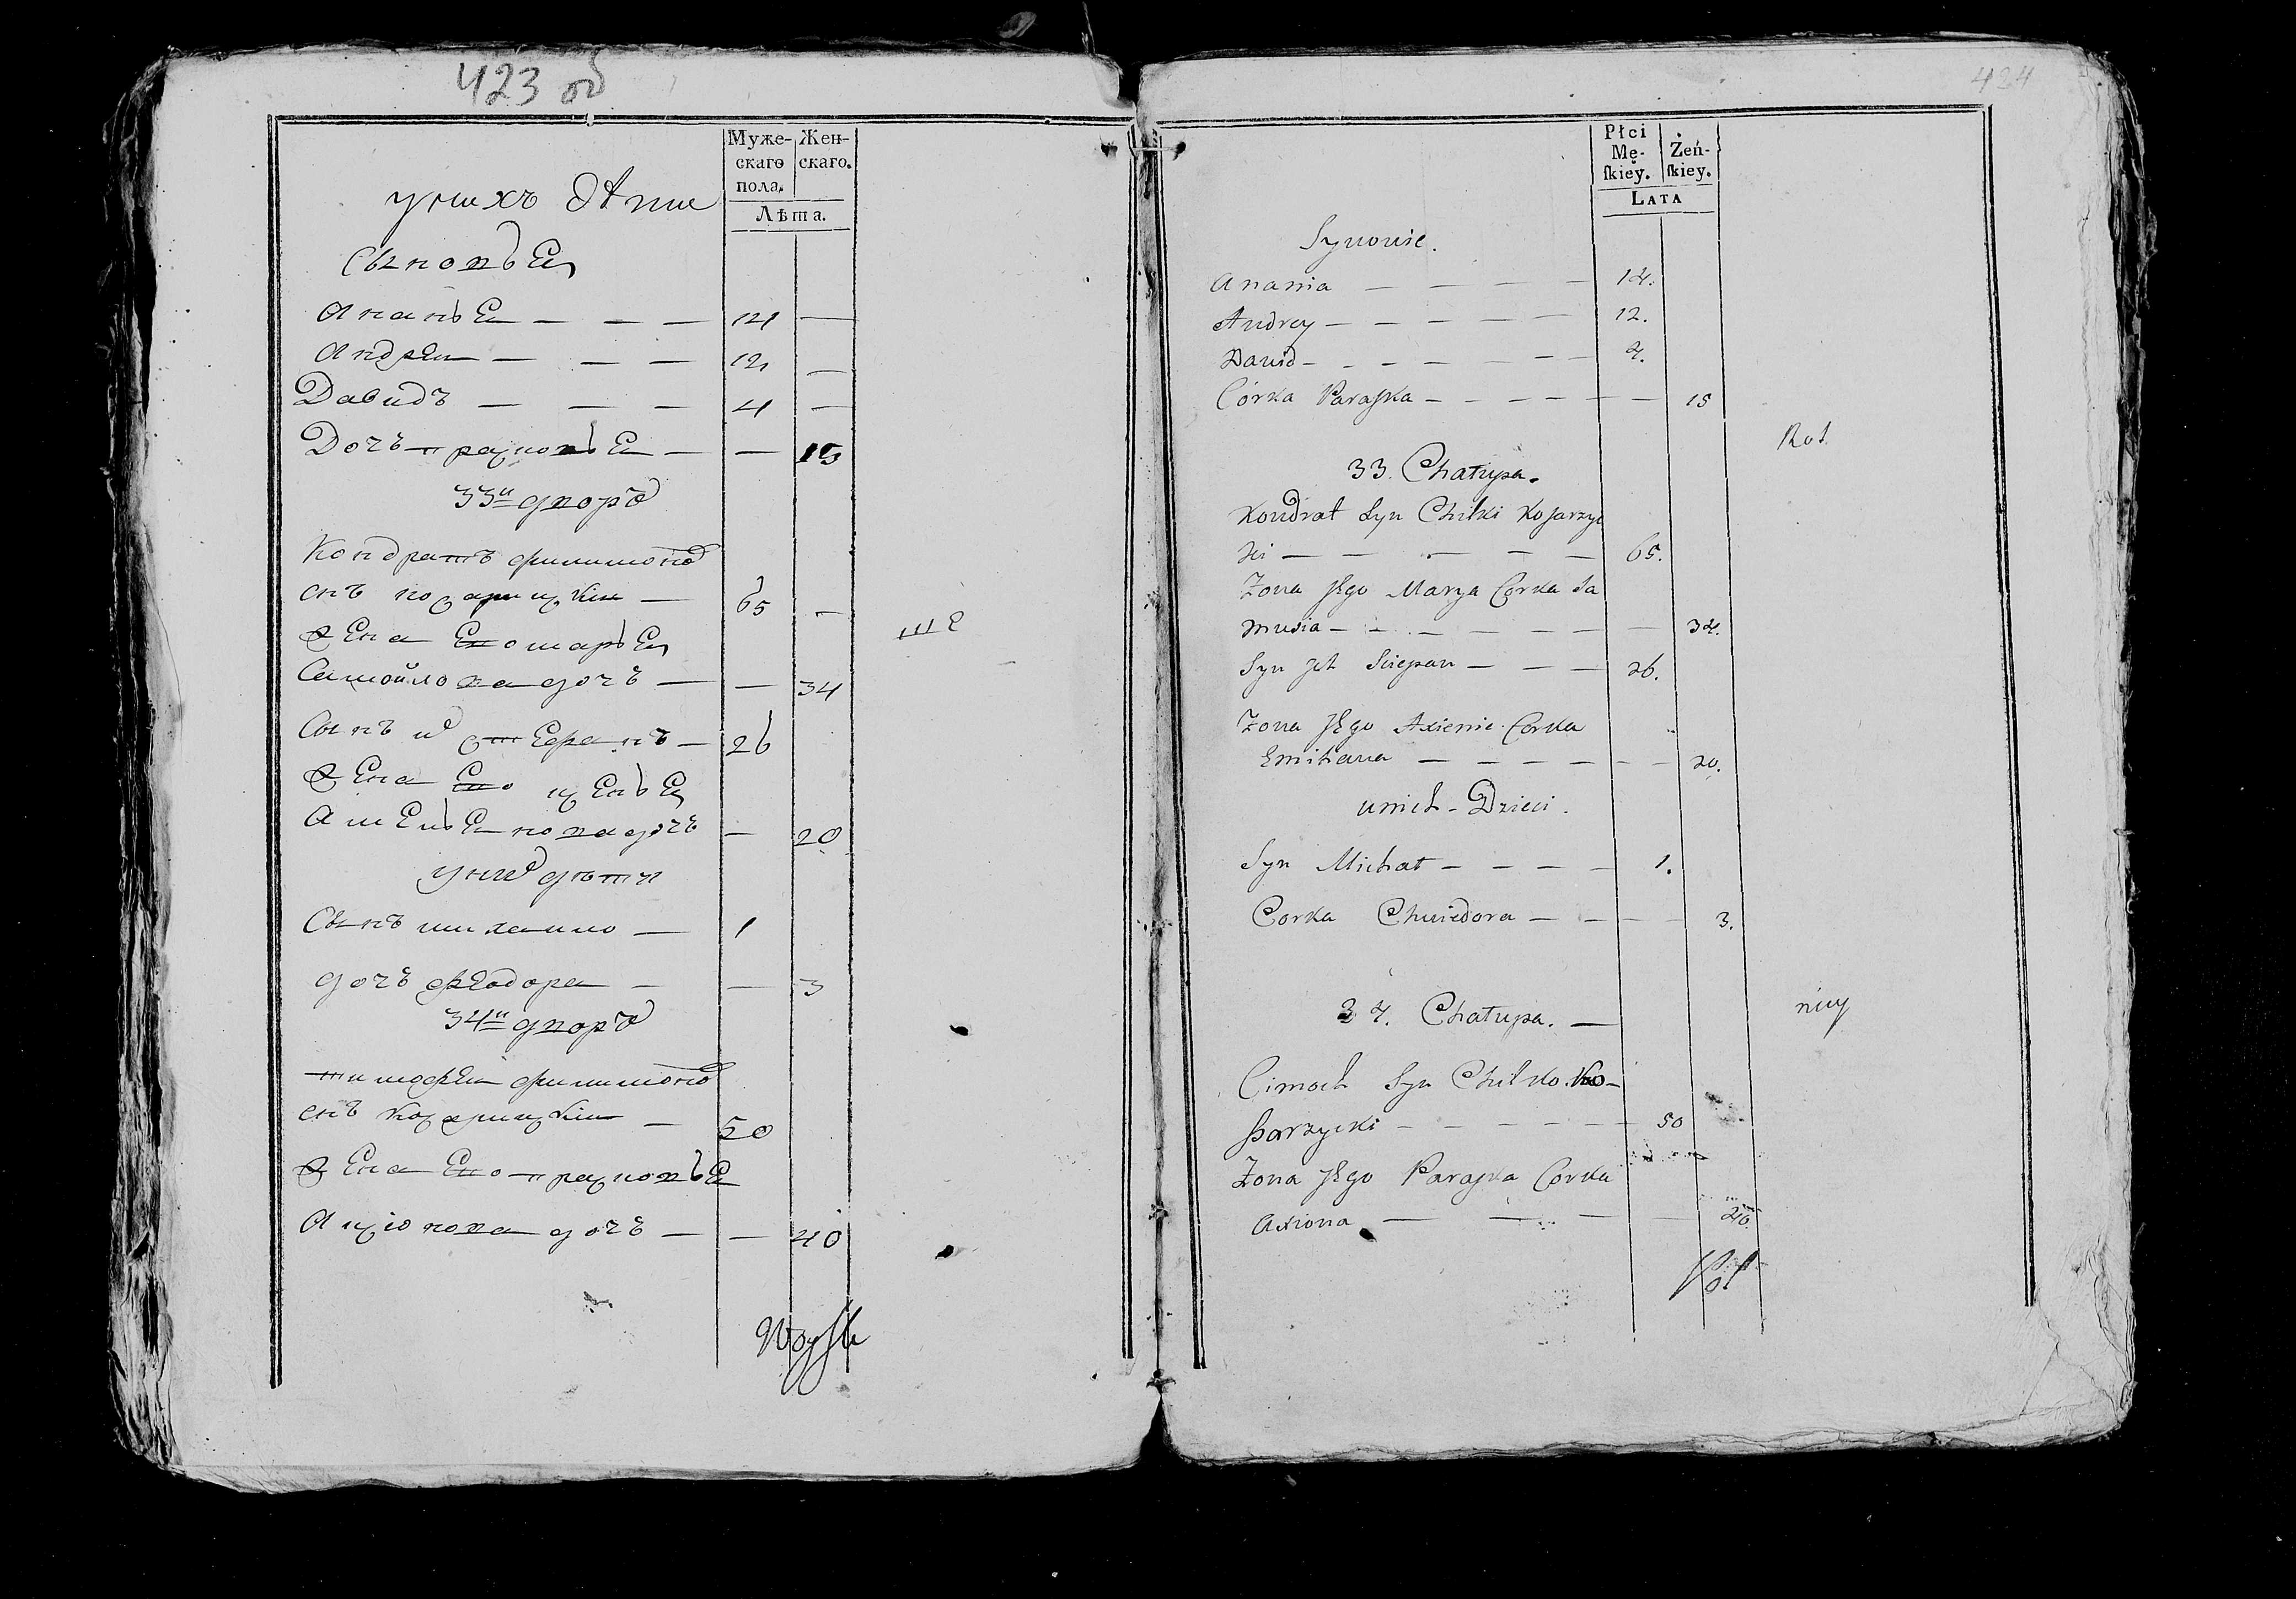 423 об
Муже-
скаго
пола.
Жен-
скаго.
Лѣта.
у нихъ дѣти
Сыновья
Ананья — — — 14 —
Андрей — — — 12 —
Давидъ — — — 4 —
Дочь прасковья — — 15
33й дворъ
Кондратъ филимонов
снъ косарицкій — 65 —
жена Его марья
Самойлова дочь — — 34
Сынъ их стефанъ — 26
жена Его
дочь — 20
у них дѣти
Сынъ михаило — 1
дочь феодора — — 3
34й дворъ
тимофей филимонов
снъ косарицкій — 50
жена Его прасковья
дочь — — 40
424
Płci
Mę-
ſkiey.
Żeń-
ſkiey.
LATA
Synowie.
Anania — — — — 14.
Andrey — — — — — 12.
Dawid — — — — — — 4.
Córka Paraſka — — — — — — 15
Rot
33. Chałupa.
Kondrat Syn Chiłki Kosarzyc
ki — — — — — 65.
Zona Jego Marya Corka Sa
musia — — — — — — — 34.
Syn jch Sciepan — — — 26.
Zona Jego Axienie Corka
Emiliana — — — — — — — 20.
unich - Dzieci.
Syn Michał — — — — — 1.
Corka Chwiedora — — — — 3.
34. Chałupa. —
Cimoch Syn Chiłko Ko-
ſsarzycki — — — — — — 50
Zona Jego Paraſka Corka
Axiona — — — —